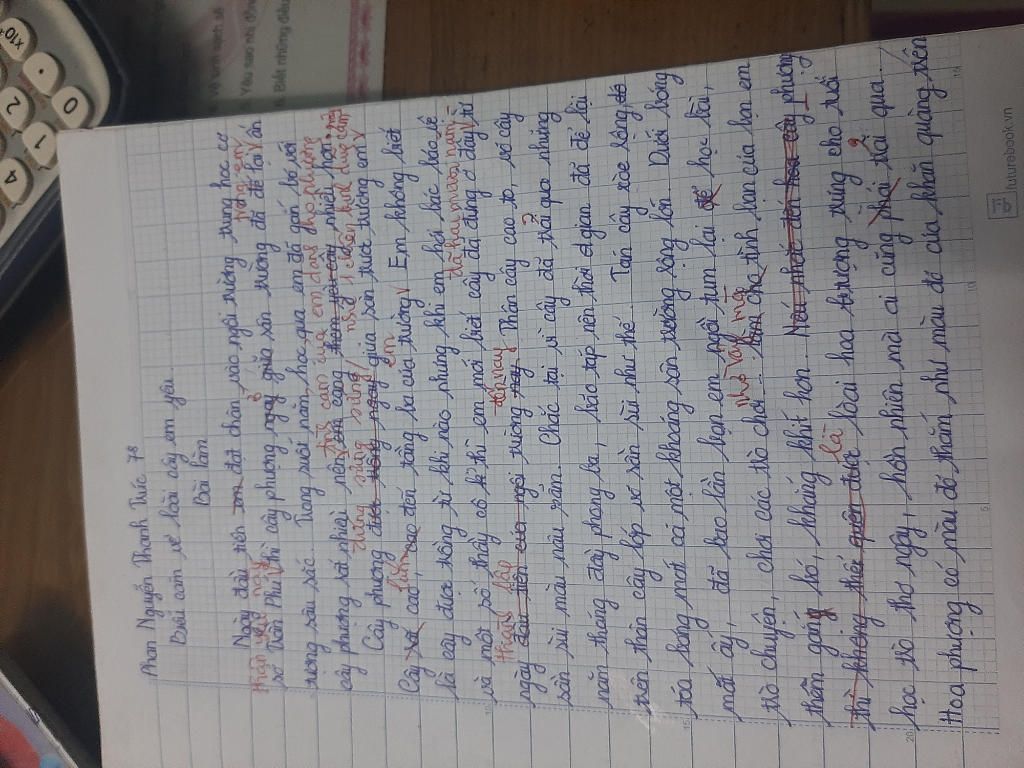 Phan Nguyễn Thanh Trúc 7.8
Biểu cảm về loài cây em yêu.
Bài làm
trong em
Ngày đầu tiên em đặt chân vào ngôi trường trung học cơ
thân yêu này ở
sở Trần Phú thì cây phượng ngay giữa sân trường đã để lại ấn
tượng sâu sắc. Trong suốt năm học qua em đã gắn bó với
tình cảm của em dành cho phượng
cây phượng rất nhiều nên em càng thêm yêu cây nhiều hơn nữa
đứng sừng sững, chễm chệ
Cây phượng được trồng ngay giữa sân trước trường em
lắm em
Cây rất cao, cao đến tầng ba của trường. Em không biết
là cây được trồng từ khi nào nhưng khi em hỏi bác bảo vệ
đã hai mươi năm
và một số thầy cô kì thì em mới biết cây đã đứng ở đây từ
thành lập đến nay
ngày đầu tiên của ngôi trường này. Thân cây cao to, vỏ cây
sần sùi màu nâu sẫm. Chắc tại vì cây đã trải qua những
năm tháng đầy phong ba, bão táp nên thời gian đã để lại
trên thân cây lớp vỏ sần sùi như thế. Tán cây xòe rộng, đã
tỏa bóng mát cả một khoảng sân trường rộng lớn. Dưới bóng
mát ấy, đã bao lần bạn em ngồi tụm lại để học bài,
nhờ vậy mà
trò chuyện, chơi các trò chơi... làm cho tình bạn của bạn em
thêm gắn bó, khăng khít hơn. Nếu nhắc đến hoa cây phượng
là
thì không thể quên được loài hoa tượng trưng cho tuổi
học trò thơ ngây, hồn nhiên mà ai cũng phải trải qua.
Hoa phượng có màu đỏ thắm như màu đỏ của khăn quàng trên
futurebook.vn
6. Biết những điều
5. Yêu sao nhi đồng
x10
0
1
2
4